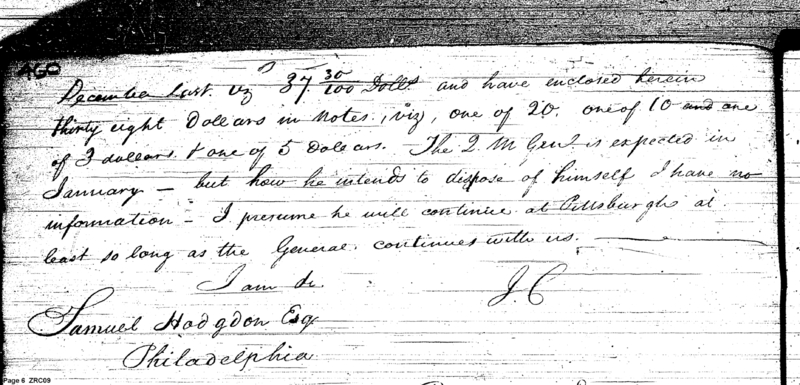 460
December Last. viz 37 30/100 Dolls and have enclosed herein
thirty eight Dollars in notes, viz, one of 20. one of 10 and one
of 3 dollars & one of 5 Dollars. The Q M Genl. is expected in
January — but how he intends to dispose of himself I have no
information — I presume he will continue at Pittsburgh at
least so long as the General continues with us.
I am &c.
J. C
Samuel Hodgdon Esq
Philadelphia
Page 6 ZRC09